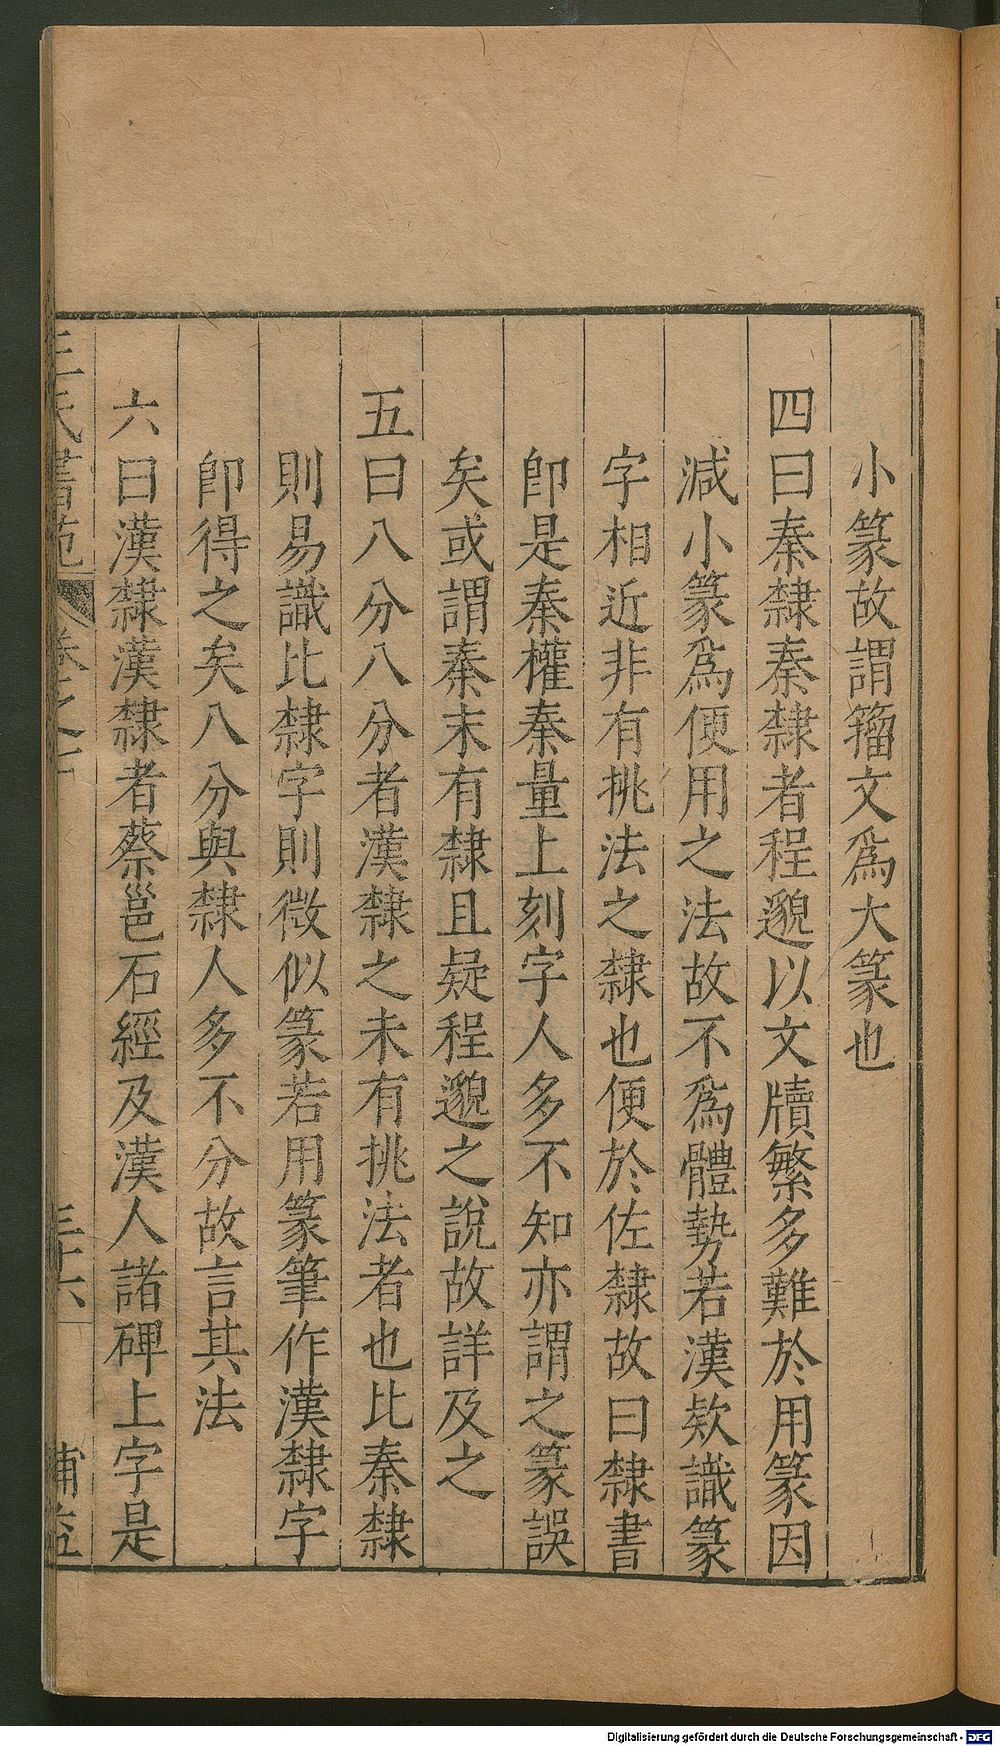 小篆故謂籀文爲大篆也
四曰秦隸秦隸者程邈以文牘繁多難於用篆因
減小篆爲便用之法故不爲體勢若漢欵識篆
字相近非有挑法之隸也便於佐隸故曰隸書
卽是秦權秦量上刻字人多不知亦謂之篆誤
矣或謂秦末有隸且疑程邈之說故詳及之
五曰八分八分者漢隸之未有挑法者也比秦隸
則易識比隸字則微似篆若用篆筆作漢隸字
卽得之矣八分與隸人多不分故言其法
六曰漢隸漢隸者蔡邕石經及漢人諸碑上字是
氏書苑 卷之 三十六 補益
Digitalisierung gefördert durch die Deutsche Forschungsgemeinschaft - DFG